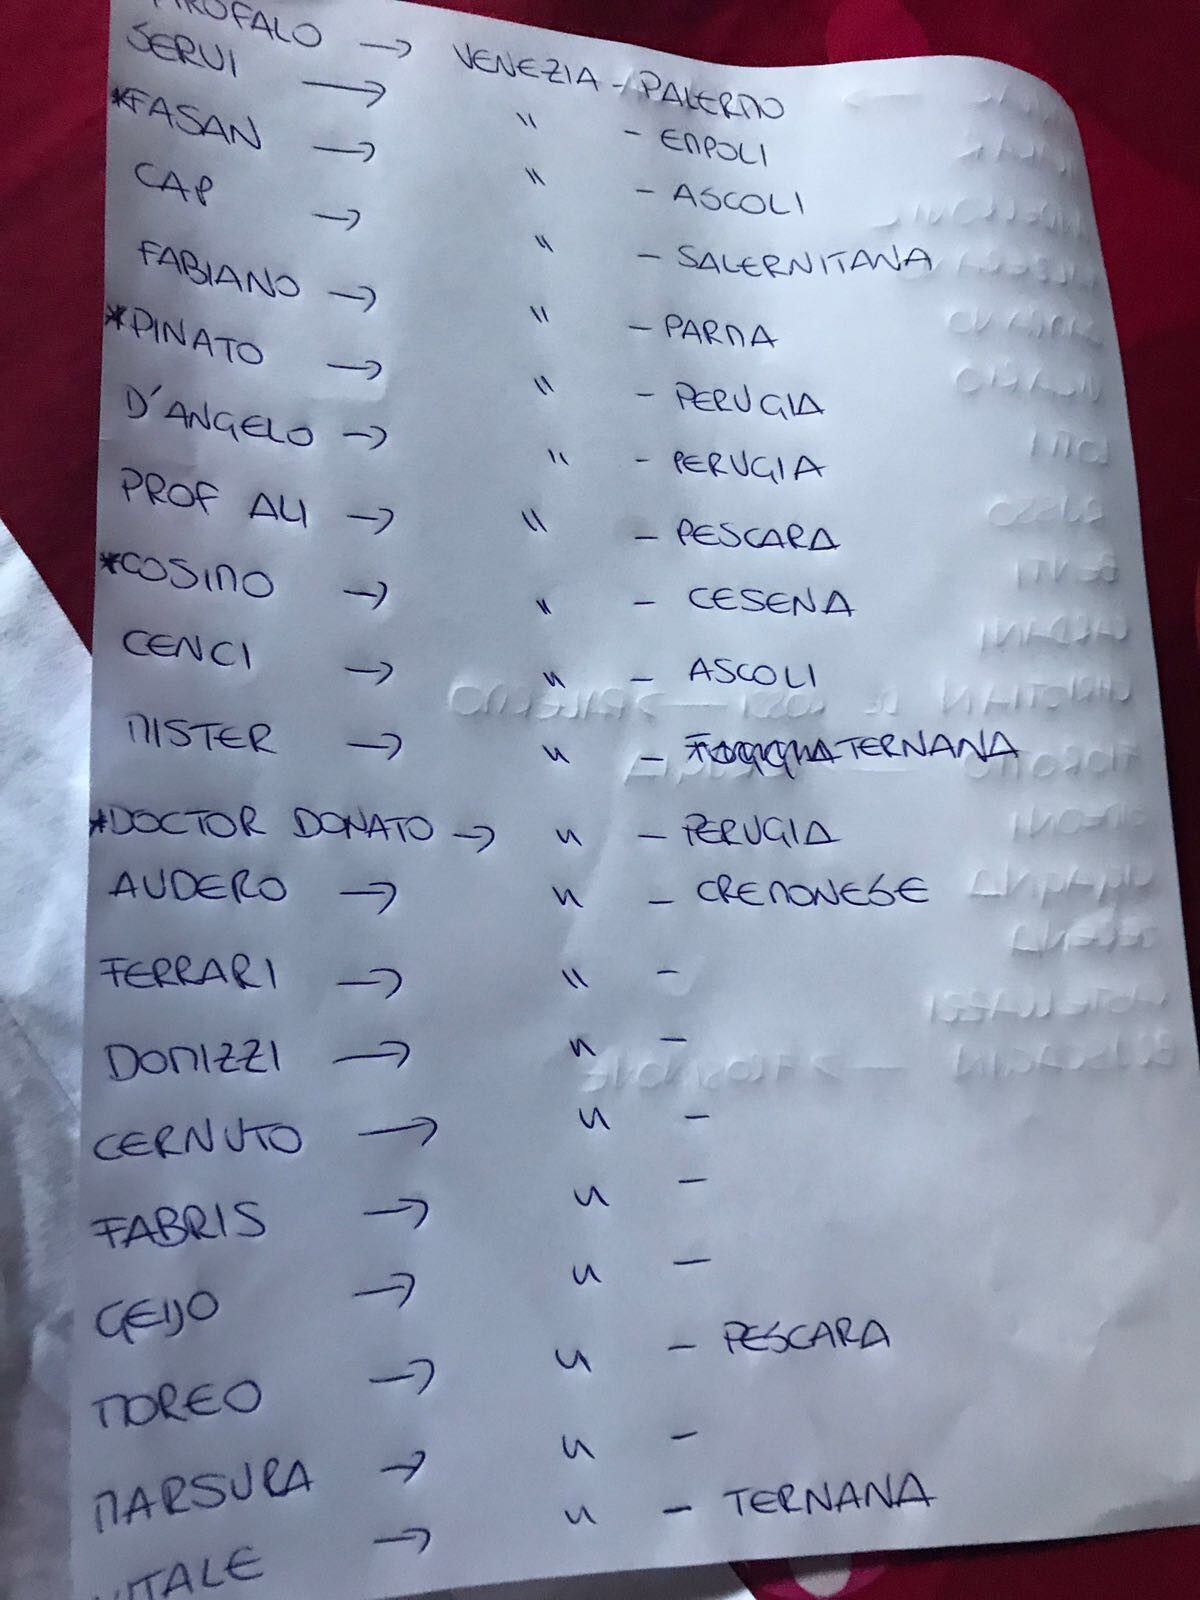 → VENEZIA - PALERMO
SERVI → " - EMPOLI
*FASAN → " - ASCOLI
CAP → " - SALERNITANA
FABIANO → " - PARMA
*PINATO → " - PERUGIA
D'ANGELO → " - PERUGIA
PROF ALI → " - PESCARA
*COSIMO → " - CESENA
CENCI → " - ASCOLI
MISTER → " - TERNANA
*DOCTOR DONATO → " - PERUGIA
AUDERO → " - CREMONESE
FERRARI → " -
DOMIZZI → " -
CERNUTO → " -
FABRIS → " -
GEIJO → " -
MOREO → " - PESCARA
MARSURA → " -
VITALE → " - TERNANA